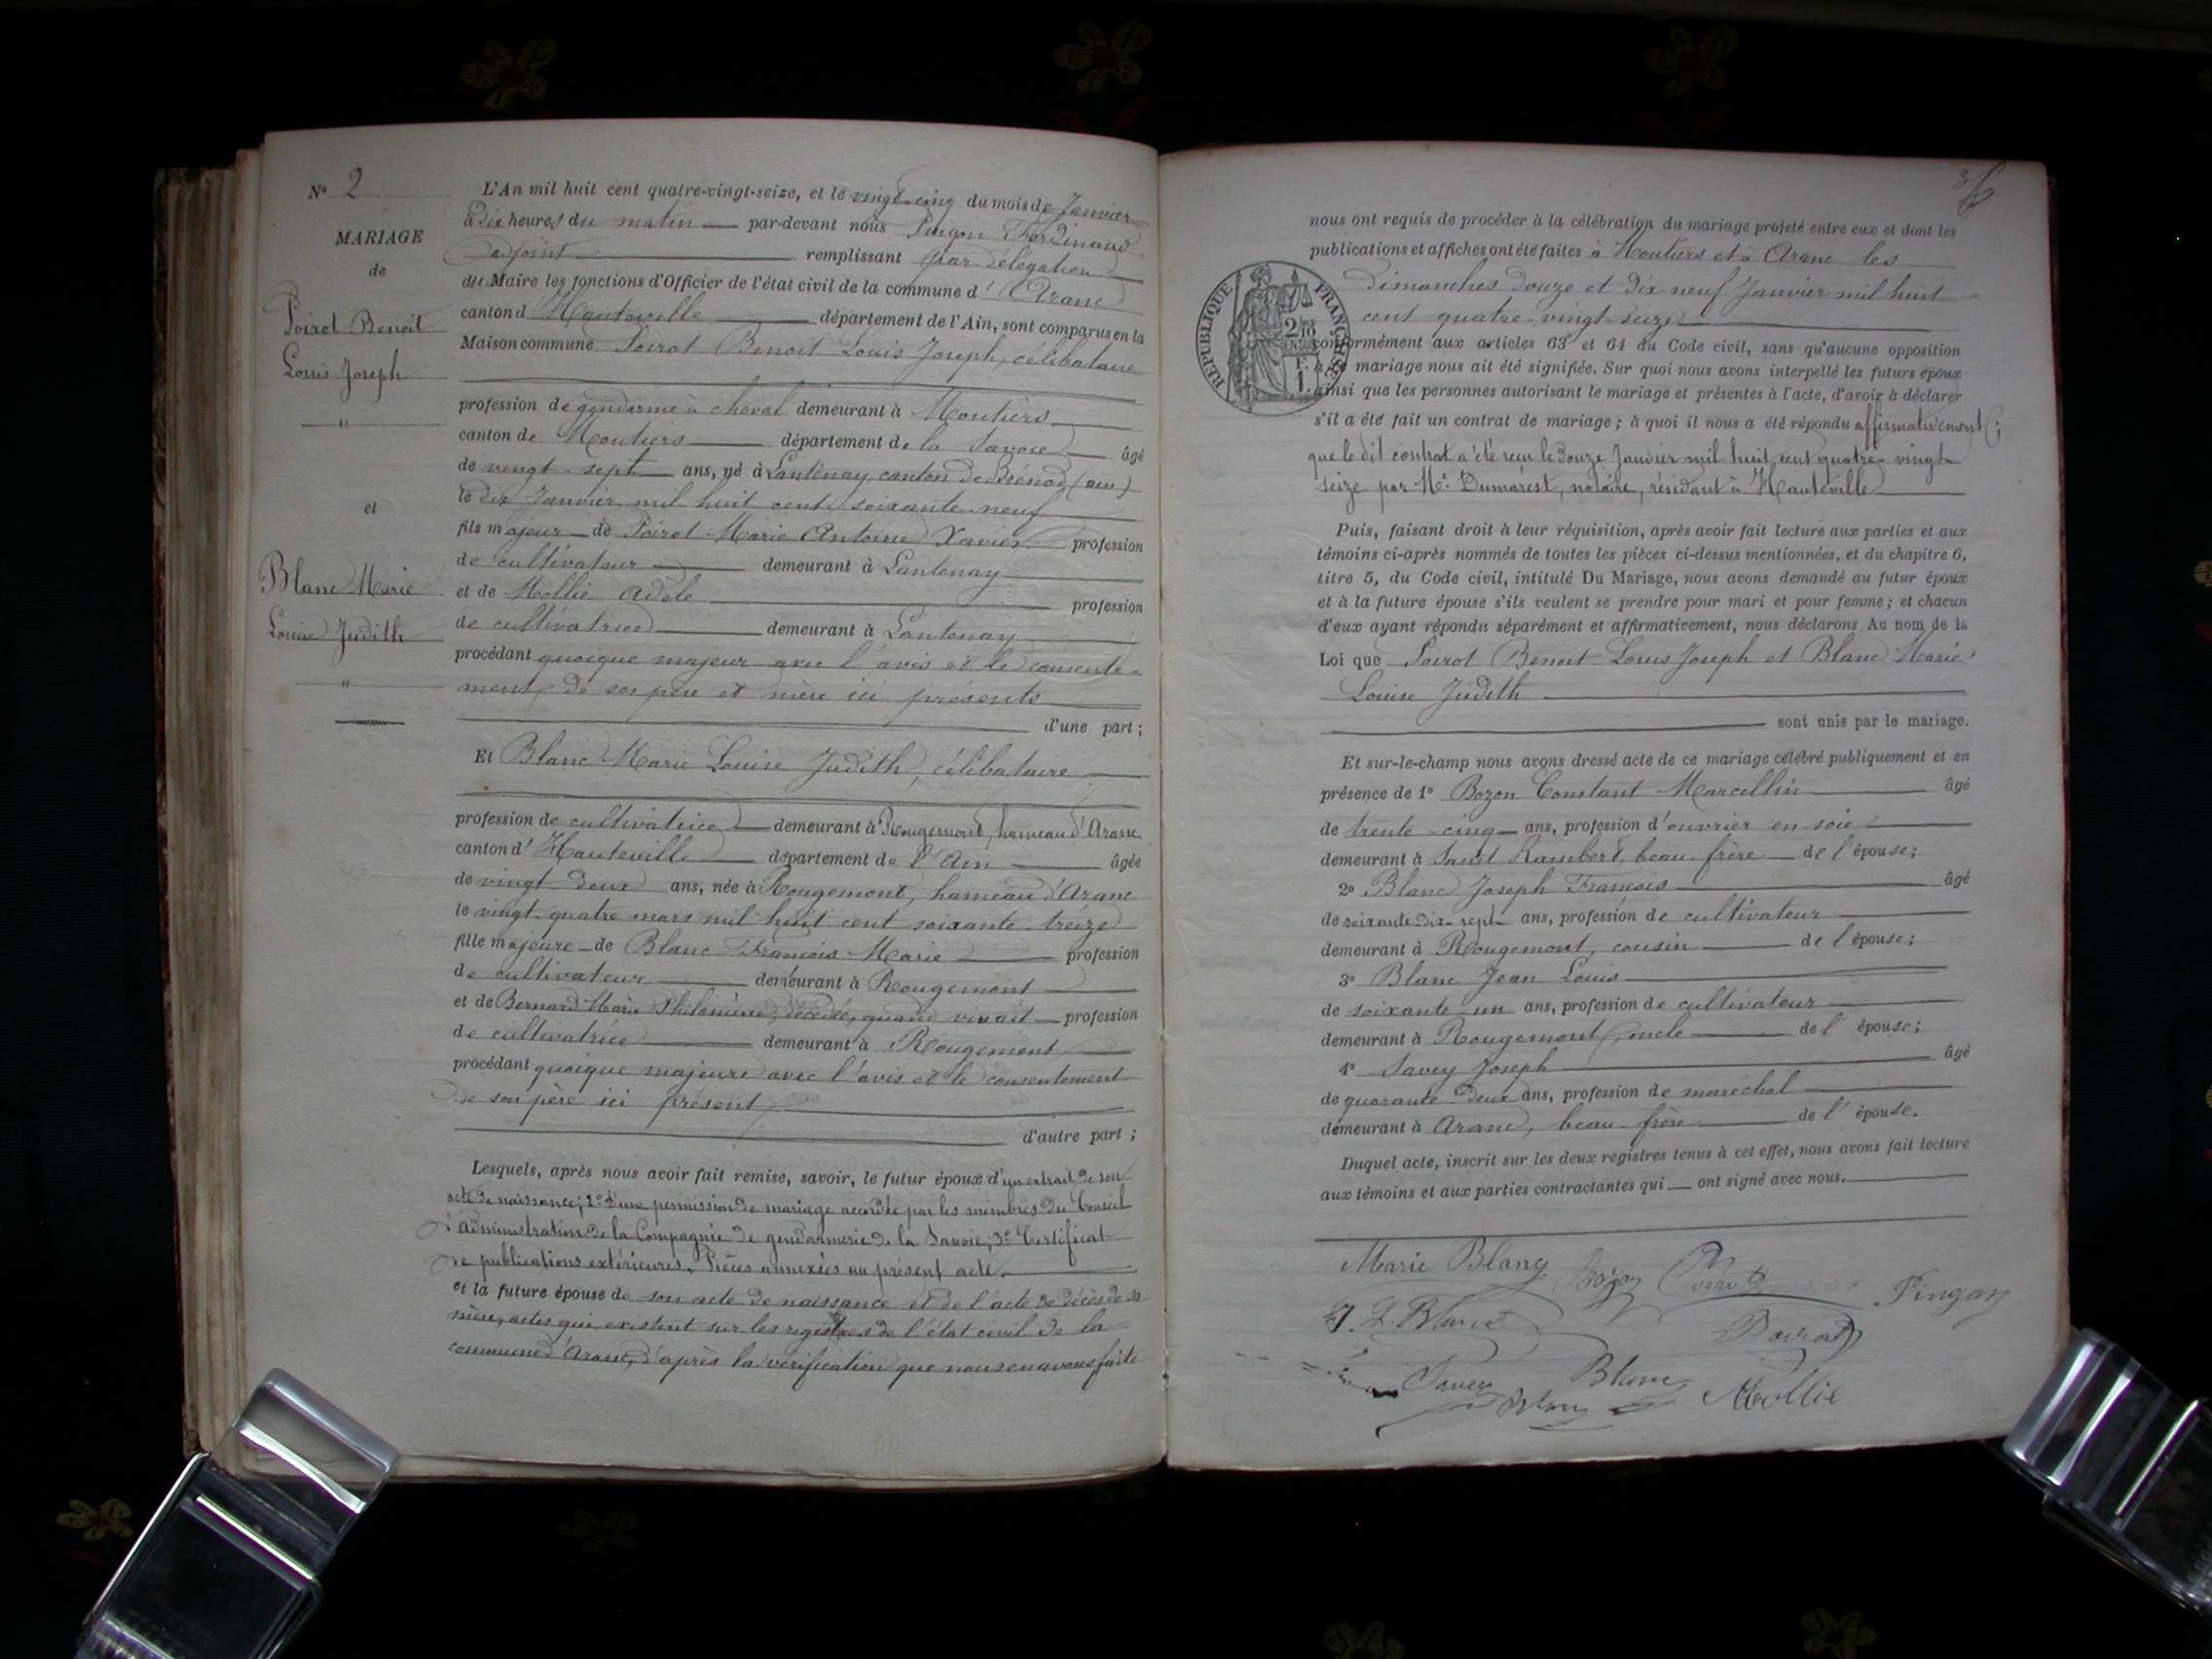 N° 2
MARIAGE
de
Poirot Benoit
Louis Joseph
"
et
Blanc Marie
Louise Judith
"
L'An mil huit cent quatre-vingt-seize, et le vingt-cinq du mois de Janvier
à dix heures du matin par-devant nous Pingon Ferdinand
adjoint remplissant par délégation
du Maire les fonctions d'Officier de l'état civil de la commune d' Aranc
canton d'Hauteville département de l'Ain, sont comparus en la
Maison commune Poirot Benoit Louis Joseph, célibataire
profession de gendarme à cheval demeurant à Moutiers
canton de Moutiers département de la Savoie âgé
de vingt-sept ans, né à Lantenay, canton de Brénod (ain)
le dix Janvier mil huit cent soixante-neuf
fils majeur de Poirot Marie Antoine Xavier profession
de cultivateur demeurant à Lantenay
et de Mollie Adèle profession
de cultivatrice demeurant à Lantenay
procédant quoique majeur avec l'avis et le consente-
ment de ses père et mère ici présents
d'une part ;
Et Blanc Marie Louise Judith, célibataire
profession de cultivatrice demeurant à Rougemont, hameau d'Aranc
canton d'Hauteville département de l'Ain âgée
de vingt deux ans, née à Rougemont, hameau d'Aranc
le vingt-quatre mars mil huit cent soixante-treize
fille majeure de Blanc François Marie profession
de cultivateur demeurant à Rougemont
et de Bernard Marie Philomène, décédée, quand vivait profession
de cultivatrice demeurant à Rougemont
procédant quoique majeure avec l'avis et le consentement
de son père ici présent
d'autre part ;
Lesquels, après nous avoir fait remise, savoir, le futur époux d'un extrait de son
acte de naissance; 2° d'une permission de mariage accordée par les membres du Conseil
d'administration de la Compagnie de gendarmerie de la Savoie; 3° Certificat
de publications extérieures. Pièces annexées au présent acte.
et la future épouse de son acte de naissance et de l'acte de décès de sa
mère, actes qui existent sur les registres de l'état civil de la
commune d'Aranc, d'après la vérification que nous en avons faite
nous ont requis de procéder à la célébration du mariage projeté entre eux et dont les
publications et affiches ont été faites à Moutiers et à Aranc les
dimanches douze et dix-neuf Janvier mil huit
cent quatre-vingt-seize
RÉPUBLIQUE FRANÇAISE
2/10 EN SUS
F. 1.
conformément aux articles 63 et 64 du Code civil, sans qu'aucune opposition
à ce mariage nous ait été signifiée. Sur quoi nous avons interpellé les futurs époux
ainsi que les personnes autorisant le mariage et présentes à l'acte, d'avoir à déclarer
s'il a été fait un contrat de mariage ; à quoi il nous a été répondu affirmativement;
que le dit contrat a été reçu le douze Janvier mil huit cent quatre-vingt
seize par Me Dumarest, notaire, résidant à Hauteville
Puis, faisant droit à leur réquisition, après avoir fait lecture aux parties et aux
témoins ci-après nommés de toutes les pièces ci-dessus mentionnées, et du chapitre 6,
titre 5, du Code civil, intitulé Du Mariage, nous avons demandé au futur époux
et à la future épouse s'ils veulent se prendre pour mari et pour femme ; et chacun
d'eux ayant répondu séparément et affirmativement, nous déclarons Au nom de la
Loi que Poirot Benoit Louis Joseph et Blanc Marie
Louise Judith
sont unis par le mariage.
Et sur-le-champ nous avons dressé acte de ce mariage célébré publiquement et en
présence de 1° Bozon Constant Marcellin âgé
de trente-cinq ans, profession d'ouvrier en soie
demeurant à Saint Rambert, beau-frère de l'épouse;
2° Blanc Joseph François âgé
de soixante-dix-sept ans, profession de cultivateur
demeurant à Rougemont, cousin de l'épouse;
3° Blanc Jean Louis
de soixante-un ans, profession de cultivateur
demeurant à Rougemont, oncle de l' épouse;
4° Savey Joseph âgé
de quarante deux ans, profession de maréchal
demeurant à Aranc, beau-frère de l' épouse.
Duquel acte, inscrit sur les deux registres tenus à cet effet, nous avons fait lecture
aux témoins et aux parties contractantes qui ont signé avec nous.
Marie Blanc Bozon Poirot Pingon
J. L. Blanc Poirot
Savey Blanc Mollie